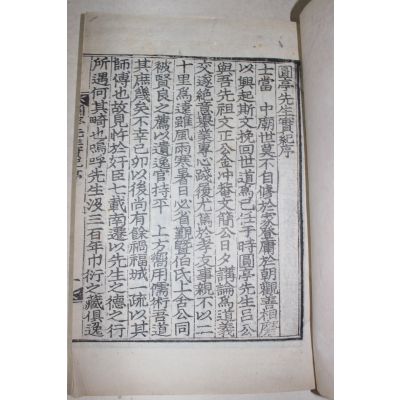 圓亭先生實紀序
士當　中廟世莫不自修於家登庸於朝觀善相磨
以興起斯文挽回世道爲己任于時圓亭先生呂公
與吾先祖文正公金冲菴文簡公日夕講論爲道義
交遂絶意擧業專心踐履尤篤於孝文事親不以二
十里爲遠雖風雨寒暑日必省觀曁伯氏上舍公同
被賢良之薦以遺逸官持平　上方嚮用儒術吾道
其庶幾矣不幸己卯以後尚有餘禍福城一疏以其
師傅也故見忤於奸臣七載南遷以先生之德之行
所遇何其畸也嗚呼先生沒三百年巾衍之藏俱逸